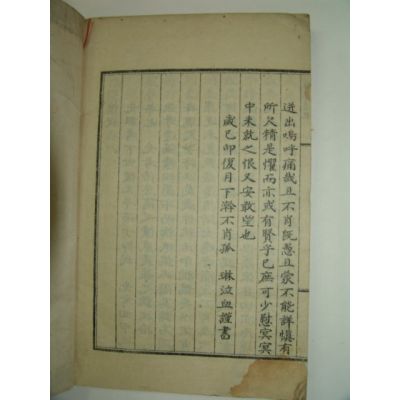 迸出嗚呼痛哉且不肖旣惷且蒙不能詳愼有
所欠精是懼而亦或有賢乎已庶可少慰冥冥
中未就之恨又安敢望也
歲己卯復月下澣不肖孤 琳泣血謹書